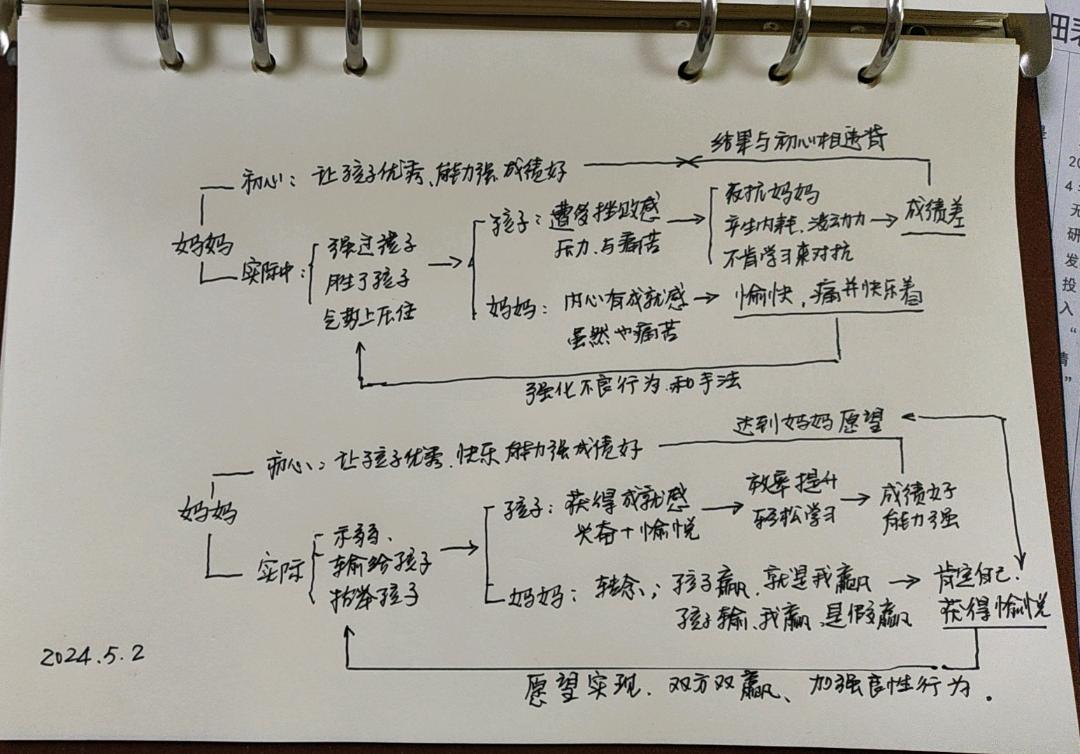 结果与初心相违背
初心：让孩子优秀、能力强、成绩好
妈妈
实际中：
强过孩子
胜了孩子
气势上压住
孩子：遭受挫败感
压力与痛苦
反抗妈妈
产生内耗、没动力
不肯学习来对抗
成绩差
妈妈：内心有成就感
虽然也痛苦
愉快，痛并快乐着
强化不良行为和手法
达到妈妈愿望
初心：让孩子优秀、快乐、能力强成绩好
妈妈
实际
示弱、
输给孩子
抬举孩子
孩子：获得成就感
兴奋+愉悦
效率提升
轻松学习
成绩好
能力强
妈妈：转念：孩子赢、就是我赢
孩子输、我赢、是假赢
肯定自己.
获得愉悦
2024.5.2
愿望实现、双方双赢、加强良性行为.
田
20
4
无
研
发
投
入
“
情
”